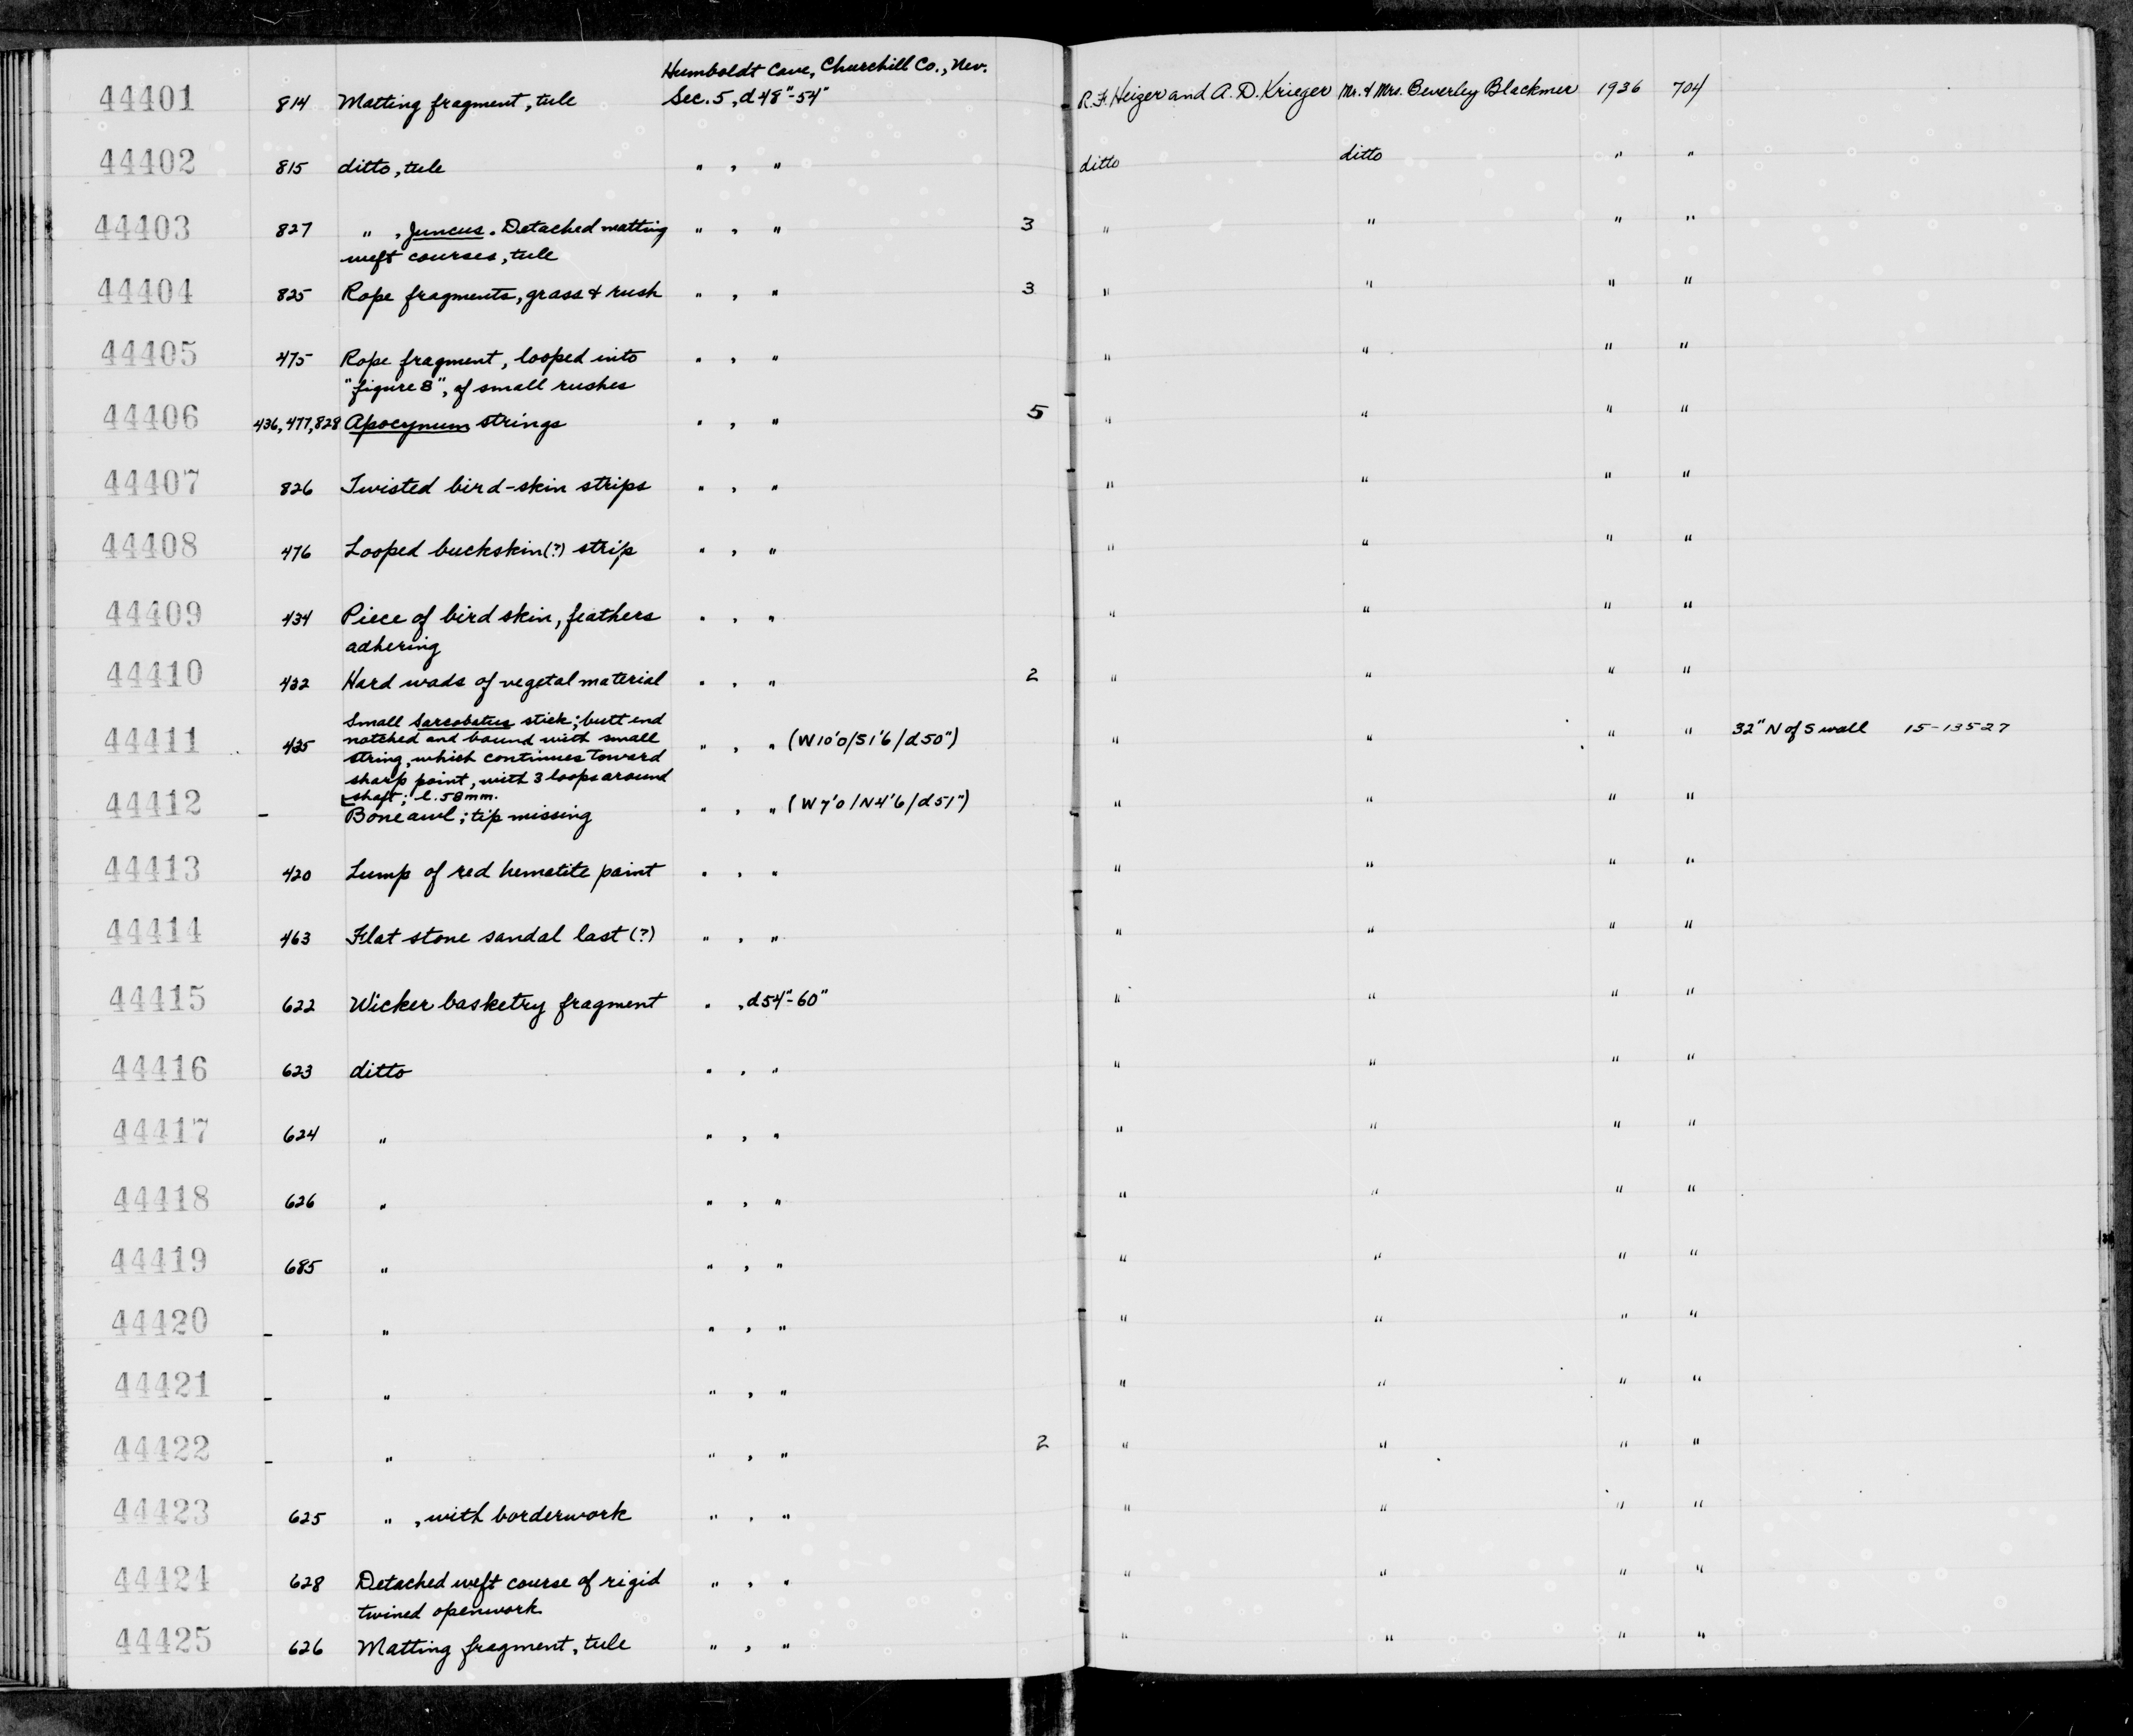 Humboldt Cave, Churchill Co., Nev.
44401 814 Matting fragment, tule Sec. 5, d 48"-54" R. F. Heizer and A. D. Krieger Mr. & Mrs. Beverley Blackmer 1936 704
44402 815 ditto, tule " , " ditto ditto " "
44403 827 " , Juncus. Detached matting " , " 3 " " " "
weft courses, tule
44404 825 Rope fragments, grass & rush " , " 3 " " " "
44405 475 Rope fragment, looped into " , " " " " "
"figure 8", of small rushes
44406 436, 477, 828 Apocynum strings " , " 5 " " " "
44407 826 Twisted bird-skin strips " , " " " " "
44408 476 Looped buckskin(?) strip " , " " " " "
44409 434 Piece of bird skin, feathers " , " " " " "
adhering
44410 432 Hard wads of vegetal material " , " 2 " " " "
Small Sarcobatus stick; butt end
44411 435 notched and bound with small " , " (W10'0/S1'6/d50") " " " " 32" N of S wall 15-13527
string, which continues toward
sharp point, with 3 loops around
shaft; l. 58 mm.
44412 - Bone awl; tip missing " , " (W7'0/N4'6/d51") " " " "
44413 420 Lump of red hematite paint " , " " " " "
44414 463 Flat stone sandal last (?) " , " " " " "
44415 622 Wicker basketry fragment " , d54"-60" " " " "
44416 623 ditto " , " " " " "
44417 624 " " , " " " " "
44418 626 " " , " " " " "
44419 685 " " , " " " " "
44420 - " " , " " " " "
44421 - " " , " " " " "
44422 - " " , " 2 " " " "
44423 625 " , with borderwork " , " " " " "
44424 628 Detached weft course of rigid " , " " " " "
twined openwork
44425 626 Matting fragment, tule " , " " " " "